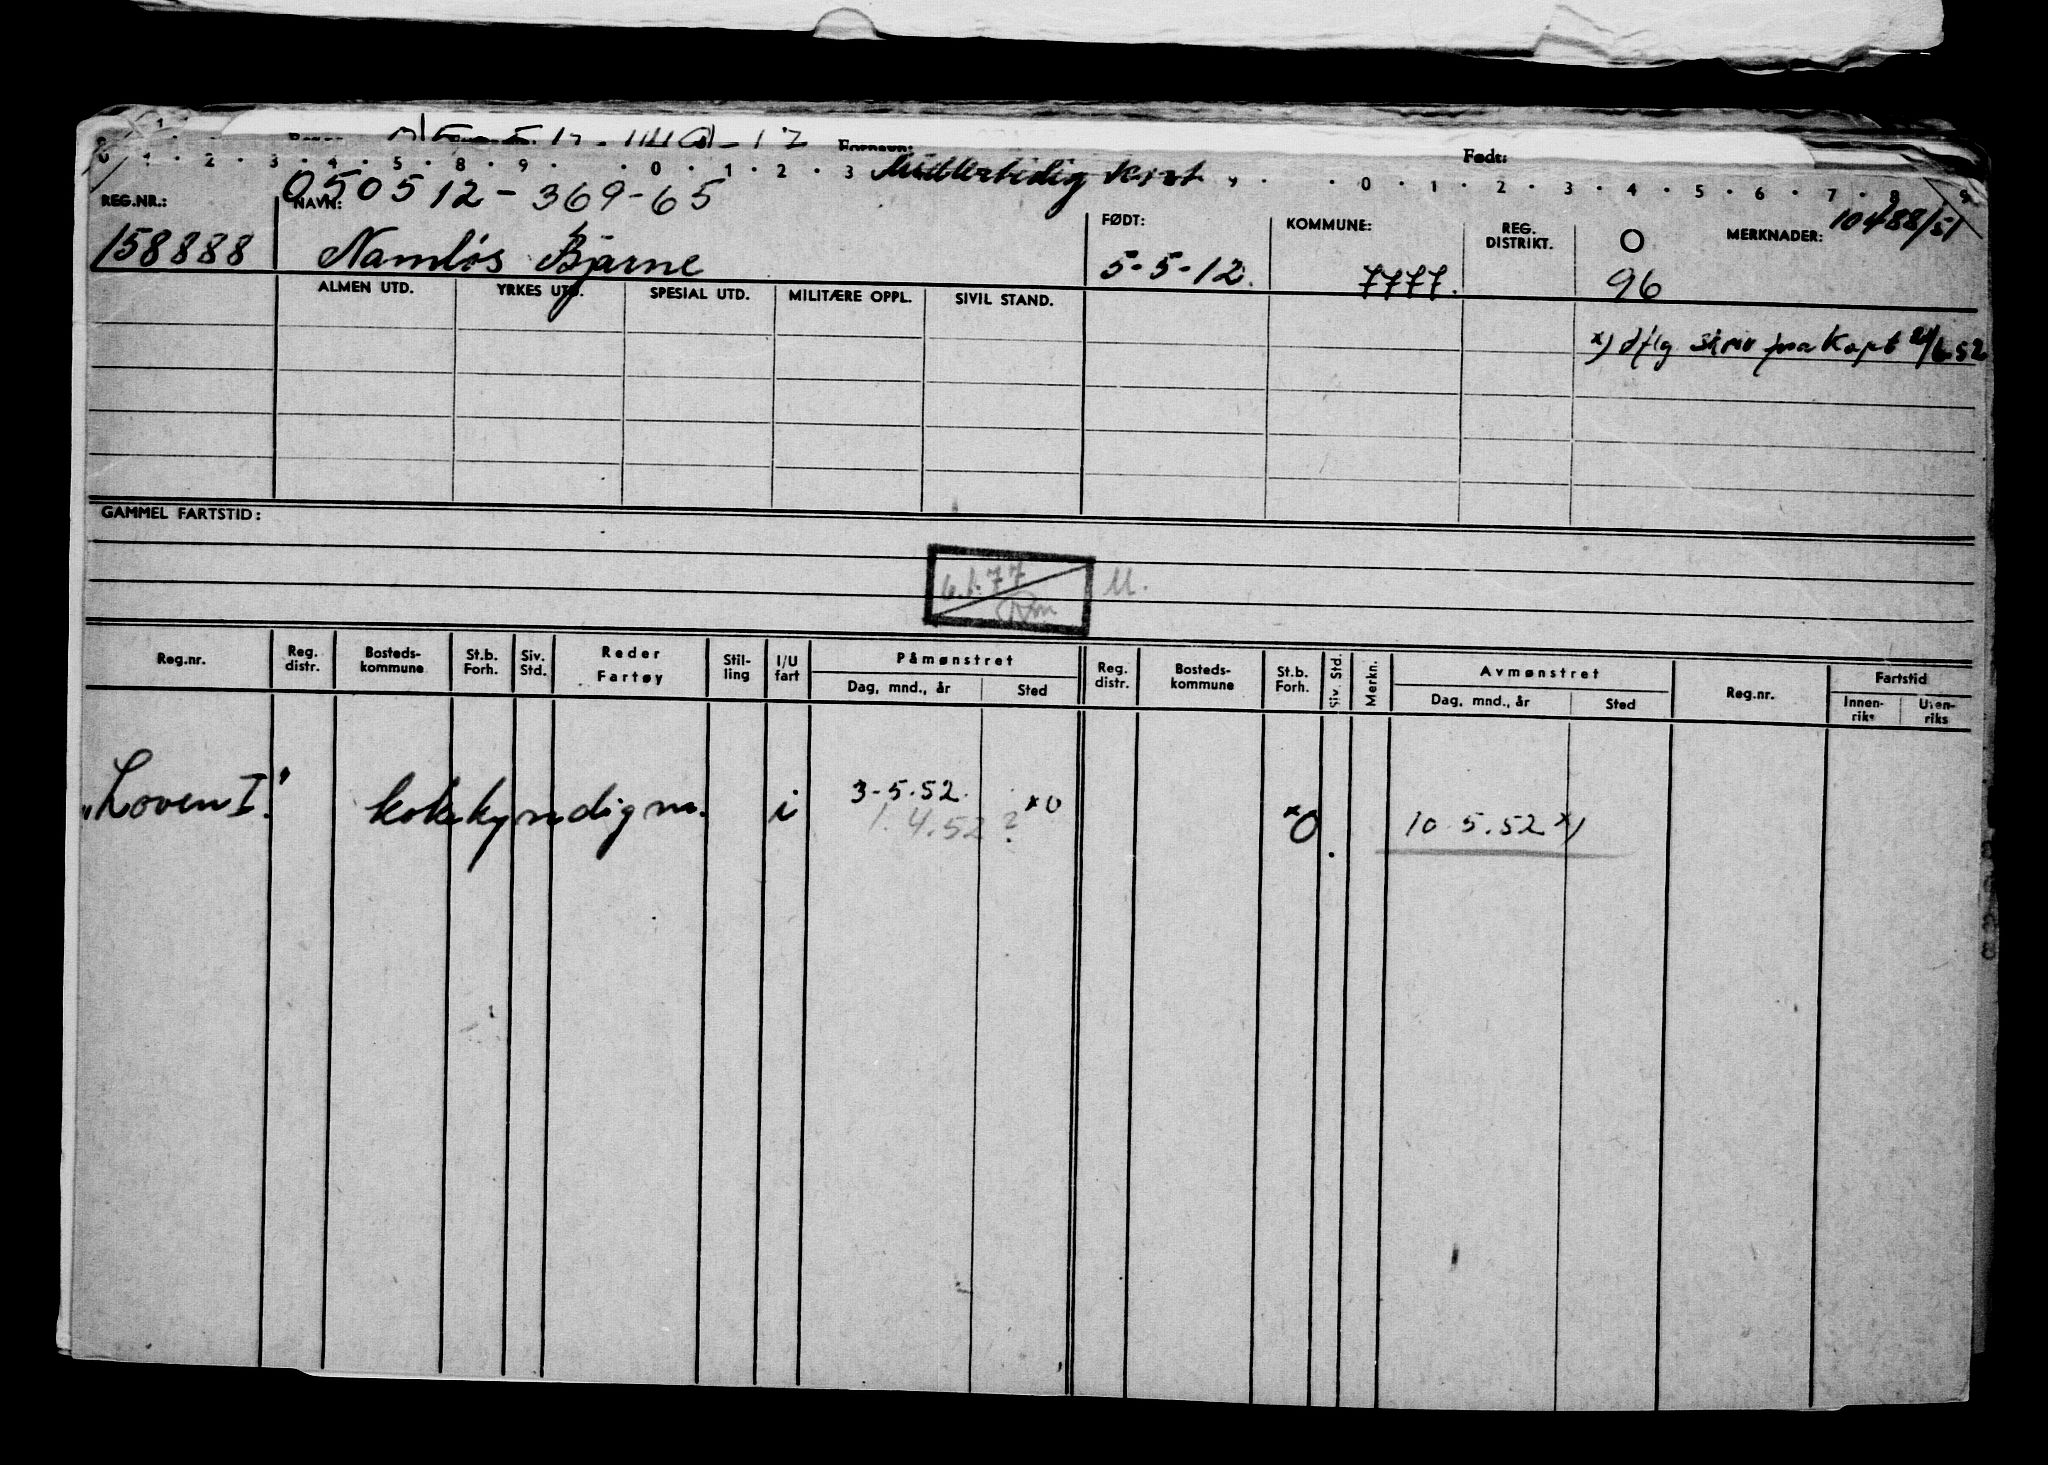 Født:
0 · 1 · 2 · 3 · 4 · 5 · 8 · 9 · · 0 · 1 · 2 · 3 Midlertidig kort · · 0 · 1 · 2 · 3 · 4 · 5 · 6 · 7 · 8 · 9
050512-369-65
REG.NR.: NAVN: FØDT: KOMMUNE: REG. DISTRIKT. O MERKNADER: 10488/51
158888 Namløs Bjarne 5-5-12. 7777. 96
ALMEN UTD. YRKES UTD. SPESIAL UTD. MILITÆRE OPPL. SIVIL STAND.
x) iflg skriv fra Kapt 21/6 52
GAMMEL FARTSTID:
6.1.77 M.
Reg.nr. Reg. distr. Bosteds- kommune St.b. Forh. Siv. Std. Reder Fartøy Stil- ling I/U fart Påmønstret Reg. distr. Bosteds- kommune St.b. Forh. Siv. Std. Merkn. Avmønstret Reg.nr. Fartstid
Dag, mnd., år Sted Dag, mnd., år Sted Innen- riks Uten- riks
"Loven I" kokkyndig m. i 3-5.52. xO xO 10.5.52 x)
1.4.52 ?